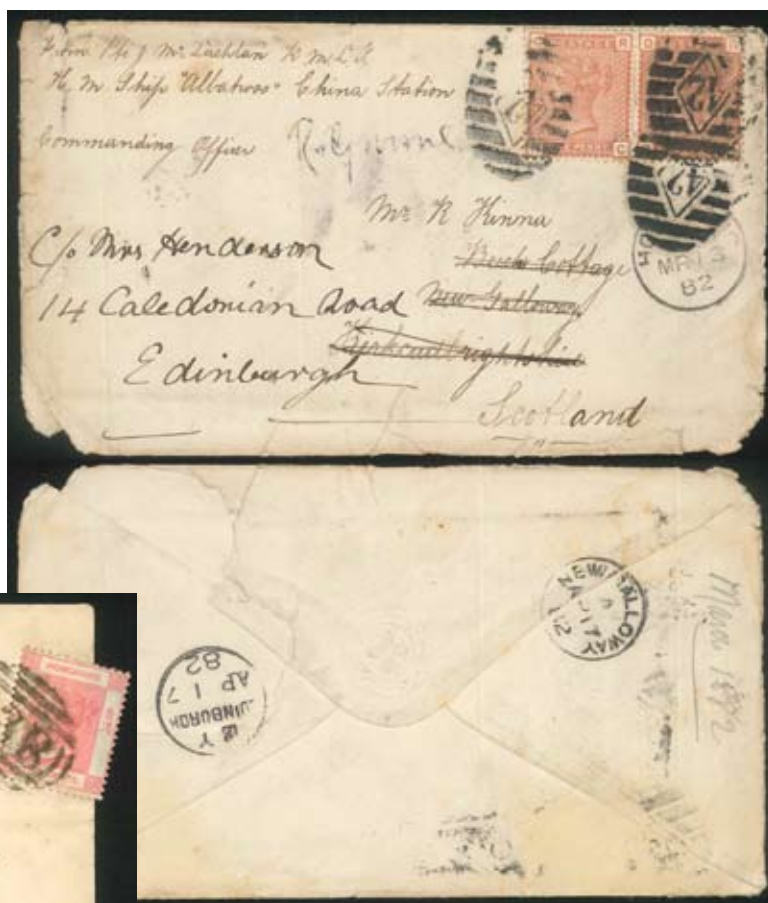 From Pte J McLachlan R M L I
H. M Ship "Albatross" China Station
Commanding Officer
Mr R Kinna
C/o Mrs Henderson
Bush Cottage
14 Caledonian Road
New Galloway
Kirkcudbrightshire
Edinburgh
Scotland
42
42
42
MR 13
82
NEW GALLOWAY
A
AP 17
82
EDINBURGH
AP 17
82
March 1882
B